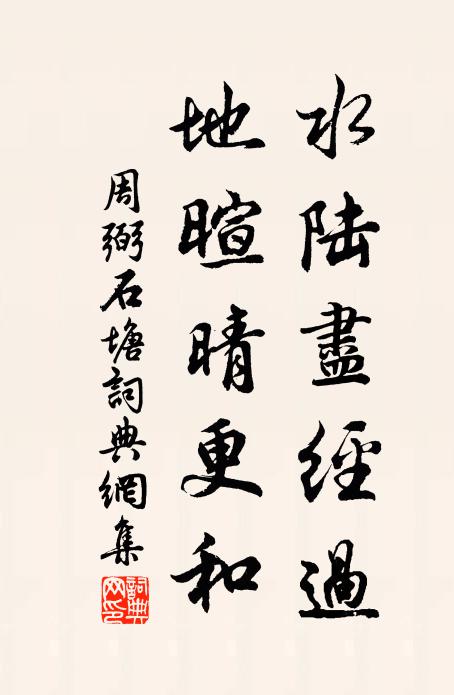 水陆盡經過
地暄晴更和
周弼石塘詞典網集
詞典網印